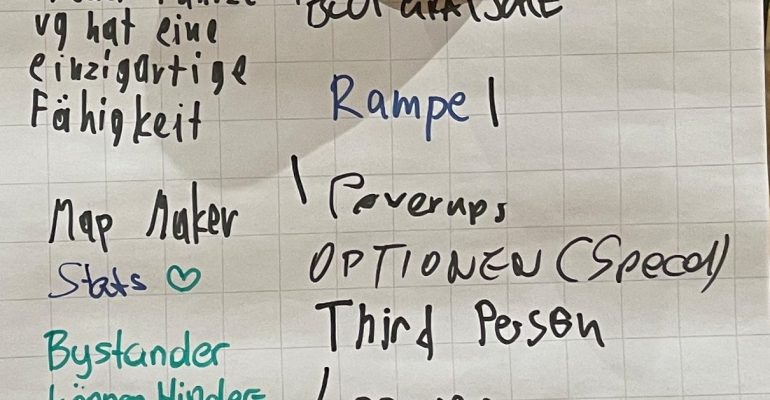 vg hat eine
einzigartige
Fähigkeit
Map Maker
Stats ♡
Bystander
können Hinder-
Rampe |
\ Poverups
OPTIONEN (Specol)
Third Peson